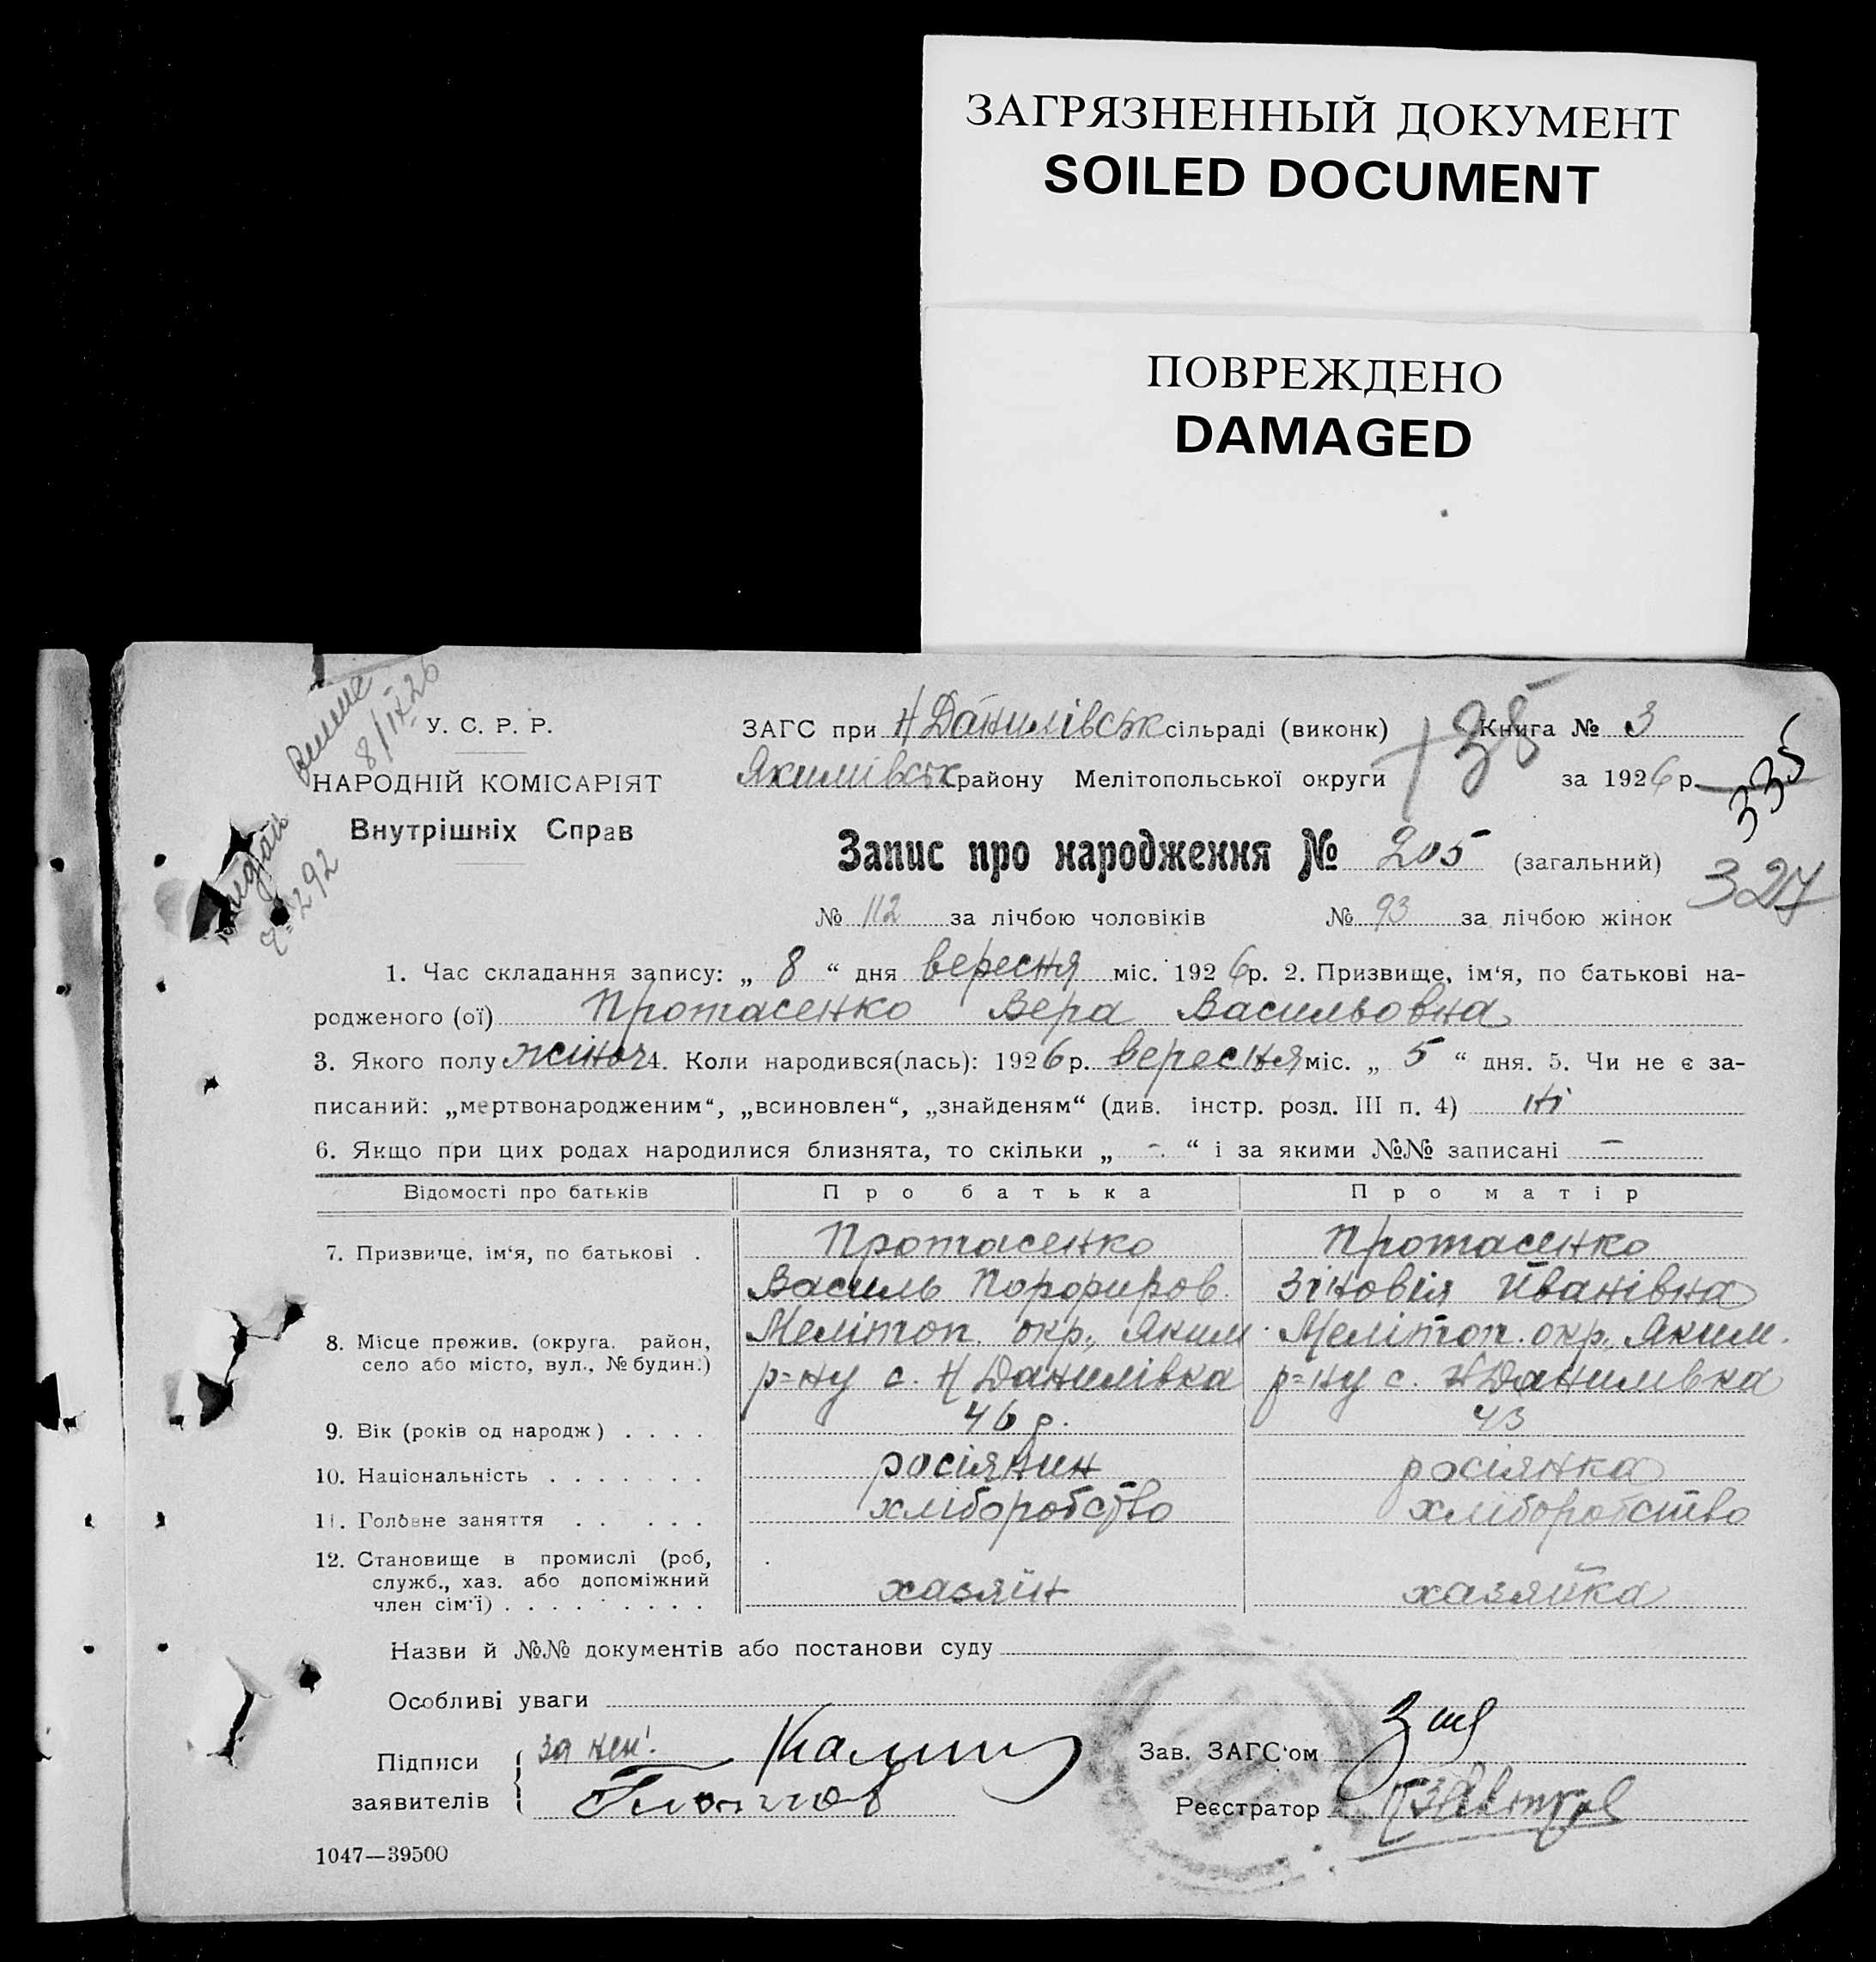 ЗАГРЯЗНЕННЫЙ ДОКУМЕНТ
SOILED DOCUMENT
ПОВРЕЖДЕНО
DAMAGED
8/IX 26
№ 292
У. С. Р. Р.
НАРОДНІЙ КОМІСАРІЯТ
Внутрішніх Справ
ЗАГС при Н Данилівськ сільраді (виконк) Книга № 3
Якимівськ району Мелітопольської округи за 1926 р.
+38
335
327
Запис про народження № 205 (загальний)
№ 112 за лічбою чоловіків № 93 за лічбою жінок
1. Час складання запису: „ 8 “ дня вересня міс. 1926 р. 2. Призвище, ім'я, по батькові на-
родженого (ої) Протасенко Вера Васильовна
3. Якого полу жіноч 4. Коли народився(лась): 1926 р. вересня міс. „ 5 “ дня. 5. Чи не є за-
писаний: „мертвонародженим“, „всиновлен“, „знайденям“ (див. інстр. розд. III п. 4) ні
6. Якщо при цих родах народилися близнята, то скільки „ - “ і за якими №№ записані —
Відомості про батьків Про батька Про матір
7. Призвище, ім'я, по батькові . Протасенко Протасенко
Василь Порфиров. Зіновія Иванівна
8. Місце прожив. (округа, район, Мелітоп. окр., Яким. Меліто‌п. окр., Яким.
село або місто, вул., № будин.) р=ну с. Н Данилівка р=ну с. Н Данилівка
9. Вік (років од народж) . . . . 46 р. 43
10. Національність . . . . . . . росіянин росіянка
11. Головне заняття . . . . . хліборобство хліборобство
12. Становище в промислі (роб,
служб., хаз. або допоміжний хазяїн хазяйка
член сім'ї) . . . . . . . . .
Назви й №№ документів або постанови суду
Особливі уваги
Підписи за неи. Зав. ЗАГС'ом
заявителів Реєстратор
1047—39500